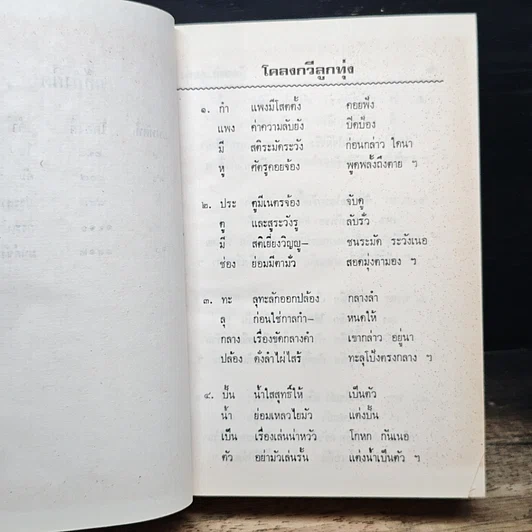 โคลงกวีลูกทุ่ง
๑. กำ แพงมีโสตตั้ง คอยฟัง
แพง ค่าความลับยัง ปิดป้อง
มี สติระมัดระวัง ก่อนกล่าว ใดนา
หู ศัตรูคอยจ้อง พูดพลั้งถึงตาย ฯ
๒. ประ ตูมีเนตรจ้อง จับดู
ตู และสูระวังรู ลับรั่ว
มี สติเยี่ยงวิญญู– ชนระมัด ระวังเนอ
ช่อง ย่อมมีตามั่ว สอดมุ่งตามอง ฯ
๓. ทะ ลุทะลักออกปล้อง กลางลำ
ลุ ก่อนใช่กาลกำ– หนดให้
กลาง เรื่องขัดกลางคำ เขากล่าว อยู่นา
ปล้อง ดั่งลำไผ่ไสร้ ทะลุโป้งตรงกลาง ฯ
๔. ปั้น น้ำใสสุทธิ์ให้ เป็นตัว
น้ำ ย่อมเหลวไยมัว แต่งปั้น
เป็น เรื่องเล่นน่าหวัว โกหก กันเนอ
ตัว อย่ามัวเล่นรั้น แต่งน้ำเป็นตัว ฯ